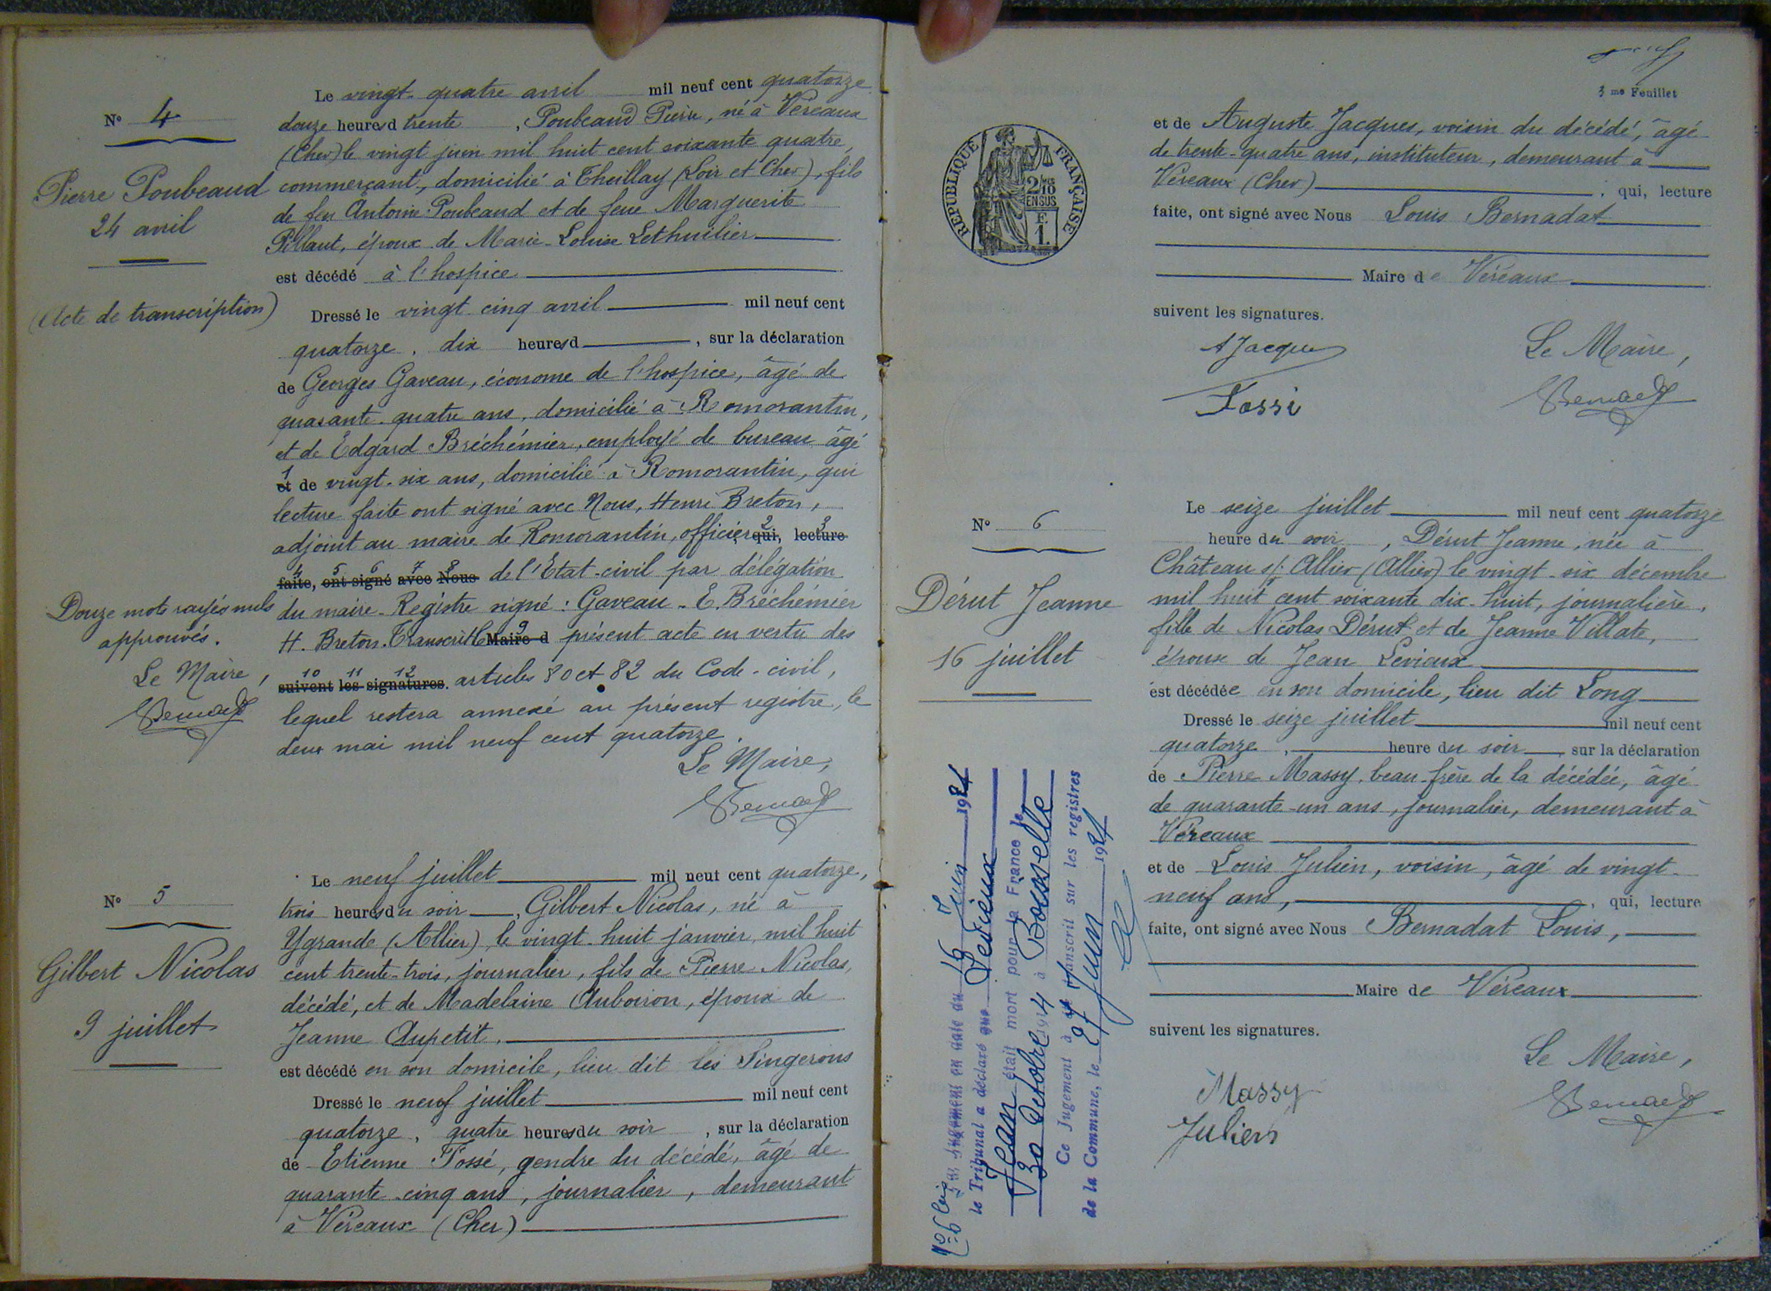 N° 4
Pierre Poubeaud
24 avril
(Acte de transcription)
Le vingt-quatre avril mil neuf cent quatorze
douze heures d trente, Poubeaud Pierre, né à Véreaux
(Cher) le vingt juin mil huit cent soixante quatre,
commerçant, domicilié à Theillay (Loir et Cher), fils
de feu Antoine Poubeaud et de feue Marguerite
Pillaut, époux de Marie-Louise Lethuilier
est décédé à l'hospice
Dressé le vingt cinq avril mil neuf cent
quatorze, dix heures d, sur la déclaration
de Georges Gaveau, économe de l'hospice, âgé de
quarante-quatre ans, domicilié à Romorantin,
et de Edgard Bréchémier, employé de bureau âgé
1
et de vingt-six ans, domicilié à Romorantin, qui
lecture faite ont signé avec Nous, Henri Breton,
adjoint au maire de Romorantin, officier qui, lecture
2 3
4 5 6 7 8
faite, ont signé avec Nous de l'Etat-civil par délégation
du maire. Registre signé : Gaveau - E. Bréchémier
H. Breton. Transcrit le Maire d présent acte en vertu des
9
10 11 12
suivent les signatures. articles 80 et 82 du Code-civil,
lequel restera annexé au présent registre, le
deux mai mil neuf cent quatorze.
Le Maire,
Douze mots rayés nuls
approuvés.
Le Maire,
N° 5
Gilbert Nicolas
9 juillet
Le neuf juillet mil neuf cent quatorze,
trois heures du soir, Gilbert Nicolas, né à
Ygrande (Allier) le vingt-huit janvier mil huit
cent trente-trois, journalier, fils de Pierre Nicolas,
décédé, et de Madelaine Auboiron, époux de
Jeanne Aupetit.
est décédé en son domicile, lieu dit les Singerons
Dressé le neuf juillet mil neuf cent
quatorze, quatre heures du soir, sur la déclaration
de Etienne Fossé, gendre du décédé, âgé de
quarante-cinq ans, journalier, demeurant
à Véreaux (Cher)
3me Feuillet
RÉPUBLIQUE FRANÇAISE
2/10
EN SUS
F.
1.
et de Auguste Jacques, voisin du décédé, âgé
de trente-quatre ans, instituteur, demeurant à
Véreaux (Cher), qui, lecture
faite, ont signé avec Nous Louis Bernadat
Maire de Véreaux
suivent les signatures.
A Jacques
Le Maire,
Fossi
N° 6
Dérut Jeanne
16 juillet
Le seize juillet mil neuf cent quatorze
heure du soir, Dérut Jeanne, née à
Château s/ Allier (Allier) le vingt-six décembre
mil huit cent soixante dix-huit, journalière,
fille de Nicolas Dérut et de Jeanne Villate,
épouse de Jean Levieux
est décédée en son domicile, lieu dit Long
Dressé le seize juillet mil neuf cent
quatorze, heure du soir, sur la déclaration
de Pierre Massy, beau-frère de la décédée, âgé
de quarante-un ans, journalier, demeurant à
Véreaux
et de Louis Julien, voisin, âgé de vingt-
neuf ans, qui, lecture
faite, ont signé avec Nous Bernadat Louis,
Maire de Véreaux
suivent les signatures.
Le Maire,
Massy
Julien
N° 6 bis
Par Jugement en date du 16 Juin 1921
le Tribunal a déclaré que Levieux
Jean était mort pour la France le
30 Octobre 1914 à Bousselle
Ce Jugement a été transcrit sur les registres
de la Commune, le 27 Juin 1921